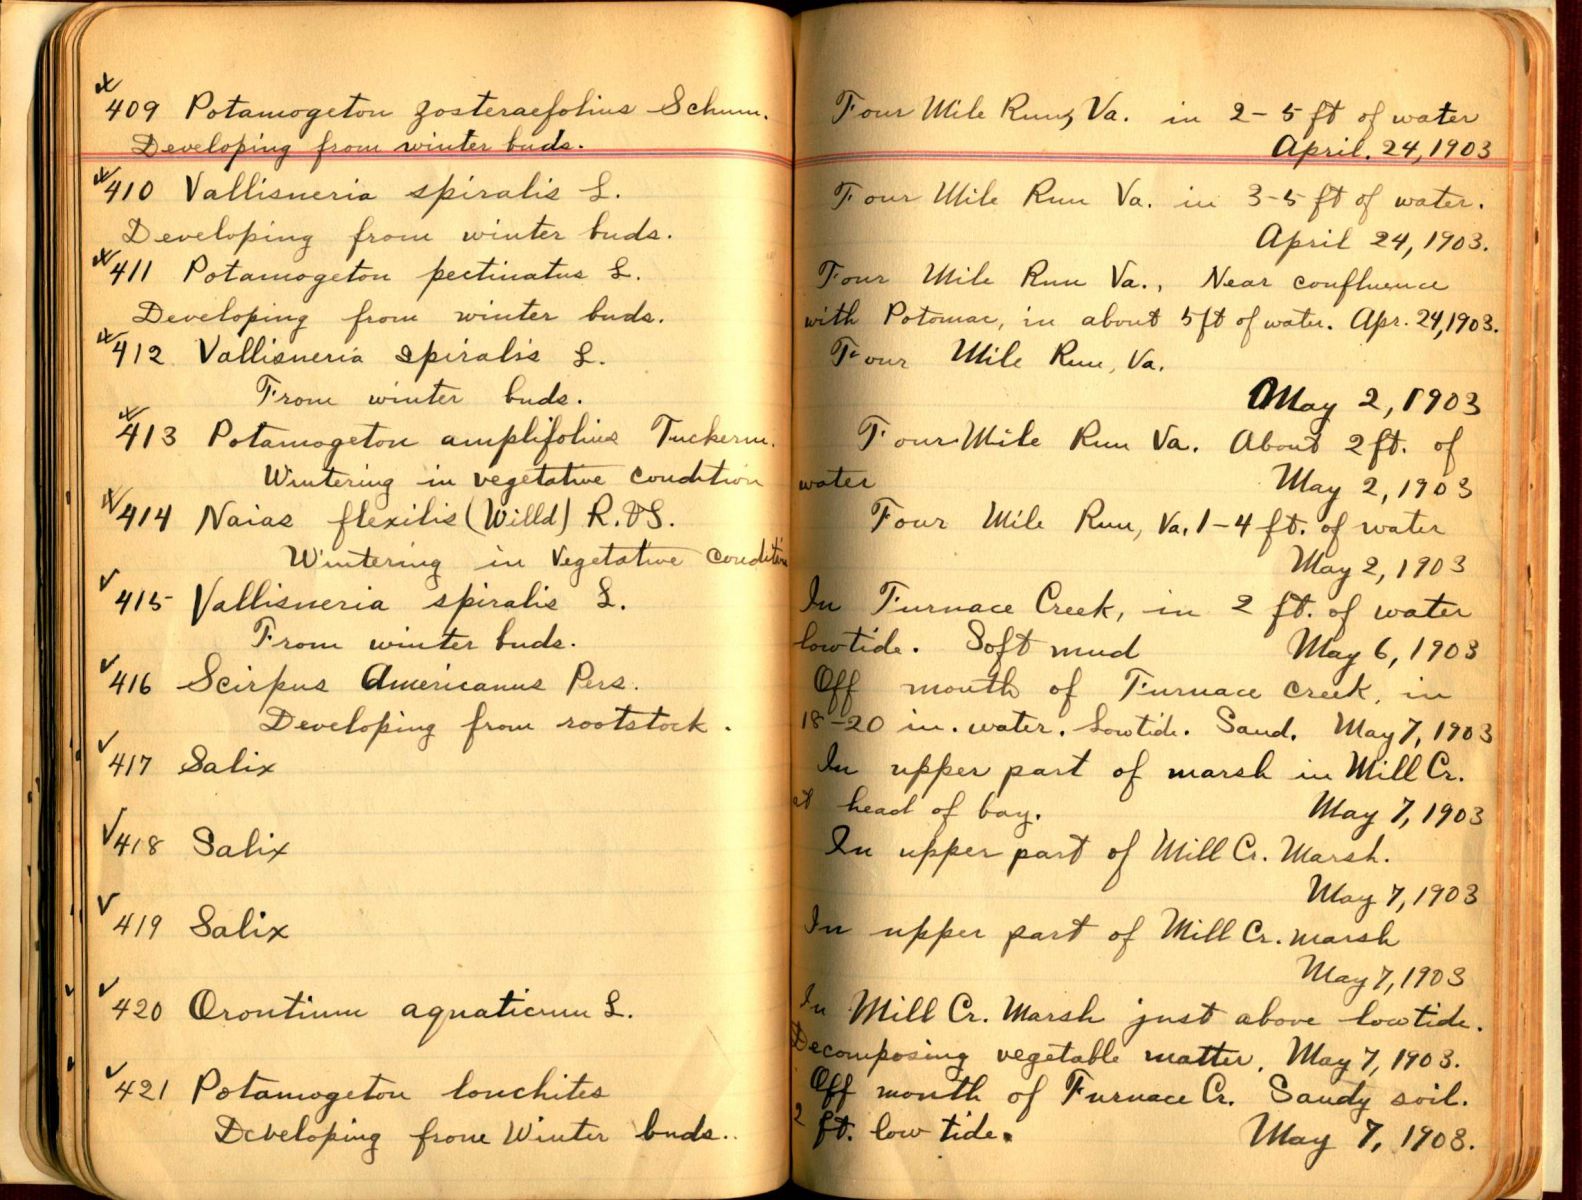 409 Potamogeton zosteraefolius Schum.
Developing from winter buds.
410 Vallisneria spiralis L.
Developing from winter buds.
411 Potamogeton pectinatus L.
Developing from winter buds.
412 Vallisneria spiralis L.
From winter buds.
413 Potamogeton amplifolius Tuckerm.
Wintering in vegetative condition
414 Naias flexilis (Willd) R. & S.
Wintering in Vegetative condition
415 Vallisneria spiralis L.
From winter buds.
416 Scirpus Americanus Pers.
Developing from rootstock.
417 Salix
418 Salix
419 Salix
420 Orontium aquaticum L.
421 Potamogeton lonchites
Developing from Winter buds..
Four Mile Run, Va. in 2-5 ft of water
April. 24, 1903
Four Mile Run Va. in 3-5 ft of water.
April 24, 1903.
Four Mile Run Va., Near confluence
with Potomac, in about 5 ft of water. Apr. 24, 1903.
Four Mile Run, Va.
May 2, 1903
Four Mile Run Va. About 2 ft. of
water May 2, 1903
Four Mile Run, Va. 1-4 ft. of water
May 2, 1903
In Furnace Creek, in 2 ft. of water
low tide. Soft mud May 6, 1903
Off mouth of Furnace creek, in
18-20 in. water. Low tide. Sand. May 7, 1903
In upper part of marsh in Mill Cr.
at head of bay. May 7, 1903
In upper part of Mill Cr. Marsh.
May 7, 1903
In upper part of Mill Cr. marsh
May 7, 1903
In Mill Cr. Marsh just above low tide.
Decomposing vegetable matter. May 7, 1903.
Off mouth of Furnace Cr. Sandy soil.
2 ft. low tide. May 7, 1903.